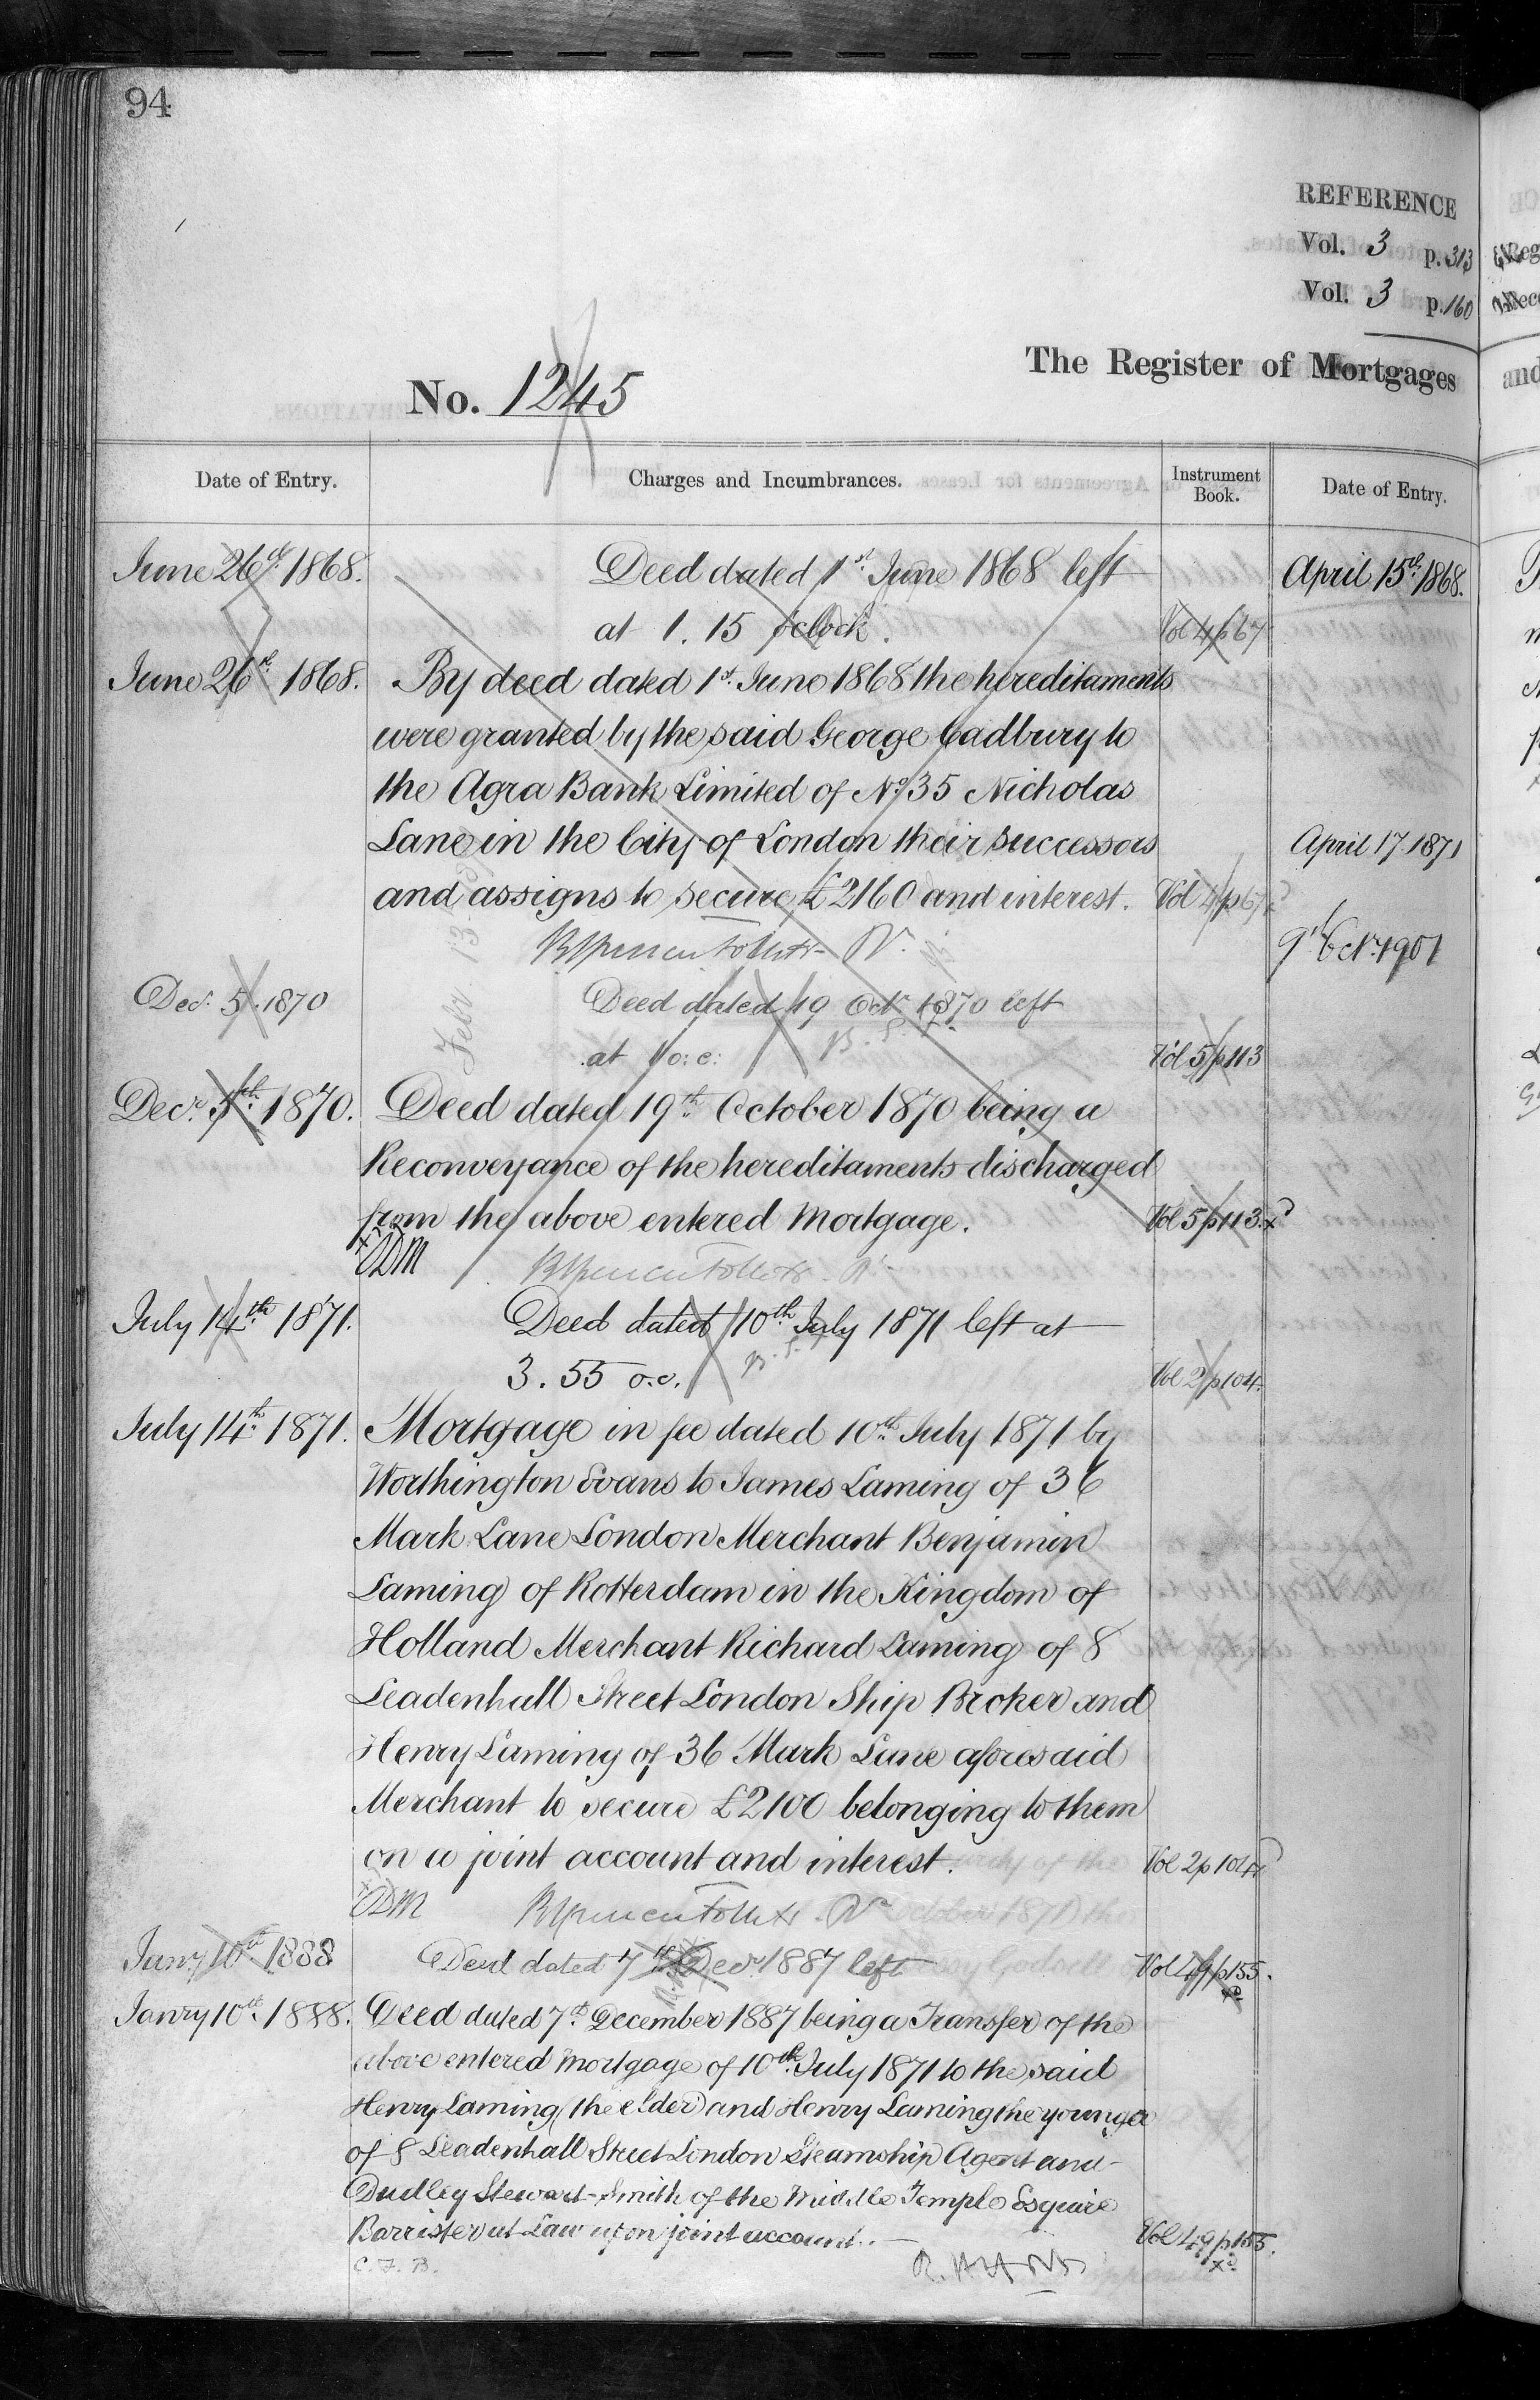 94
REFERENCE
Vol. 3 p. 313
Vol. 3 p. 160
The Register of Mortgages
No. 1245
Date of Entry.
Charges and Incumbrances.
Instrument Book.
Date of Entry.
June 26th 1868. Deed dated 1st June 1868 left
at 1.15 o'clock. Vol 4 p 67
June 26th 1868. By deed dated 1st June 1868 the hereditaments
were granted by the said George Cadbury to
the Agra Bank Limited of No. 35 Nicholas
Lane in the City of London their successors
and assigns to secure £2160 and interest. Vol 4 p 67
Decr. 5. 1870 Deed dated 19 Octr 1870 left
at 1 o:c: Vol 5 p 113
Decr. 5th 1870. Deed dated 19th October 1870 being a
Reconveyance of the hereditaments discharged
from the above entered Mortgage. Vol 5 p 113
July 14th 1871. Deed dated 10th July 1871 left at
3.55 o.c. Vol 2 p 104.
July 14th 1871. Mortgage in fee dated 10th July 1871 by
Worthington Evans to James Laming of 36
Mark Lane London Merchant Benjamin
Laming of Rotterdam in the Kingdom of
Holland Merchant Richard Laming of 8
Leadenhall Street London Ship Broker and
Henry Laming of 36 Mark Lane aforesaid
Merchant to secure £2100 belonging to them
on a joint account and interest. Vol 2 p 104
Jany 10th 1888 Deed dated 7th Decr 1887 left Vol 49 p 155.
Janry 10th 1888. Deed dated 7th December 1887 being a Transfer of the
above entered Mortgage of 10th July 1871 to the said
Henry Laming (the elder) and Henry Laming the younger
of 8 Leadenhall Street London Steamship Agent and
Dudley Stewart-Smith of the Middle Temple Esquire
Barrister at Law upon joint account. Vol 49 p 155.
C. F. B.
April 15th 1868.
April 17. 1871
9th Octr. 1901